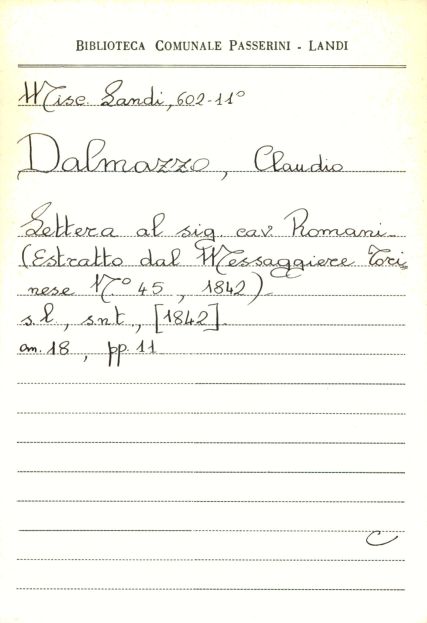 BIBLIOTECA COMUNALE PASSERINI - LANDI
Misc. Landi, 602-11°
Dalmazzo, Claudio
Lettera al sig. cav. Romani.
(Estratto dal Messaggiere Tori-
nese N.° 45, 1842).
s.l., s.n.t., [1842].
cm. 18, pp. 11
C